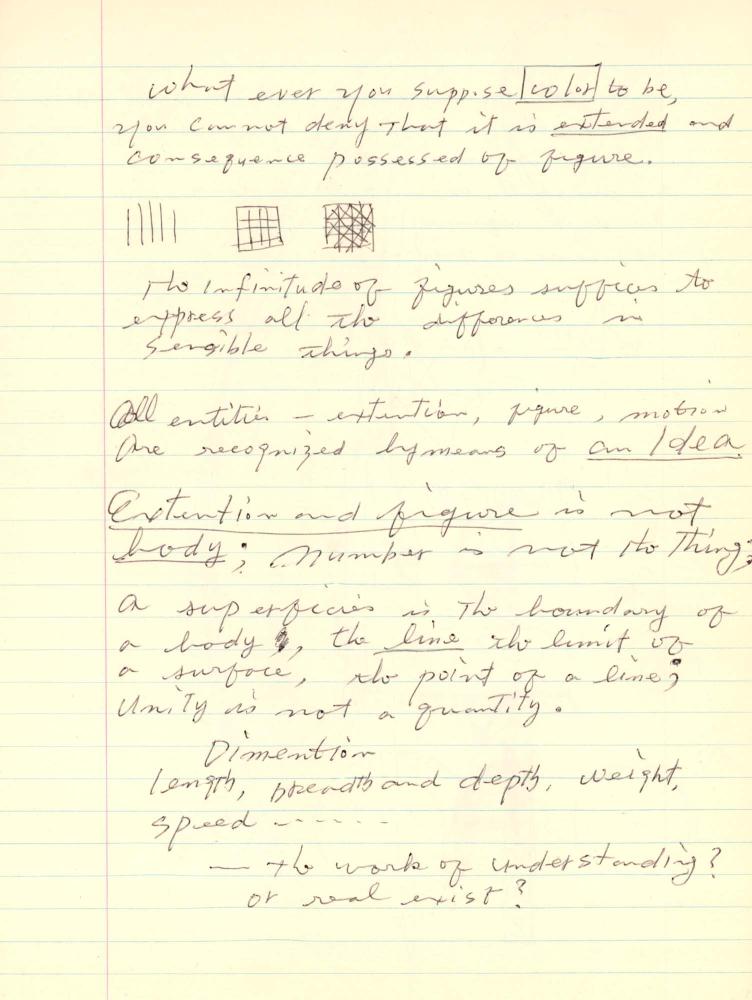 What ever you suppose color to be,
you cannot deny that it is extended and
consequence possessed of figure.
The infinitude of figures suffices to
express all the differences in
sensible things.
All entities – extention, figure, motion
Are recognized by means of an Idea.
Extention and figure is not
body; number is not the Thing;
a superficies is The boundary of
a body, the line the limit of
a surface, the point of a line;
Unity is not a quantity.
Dimention
length, breadth and depth, weight,
speed - - - - - -
— the work of understanding?
or real exist?